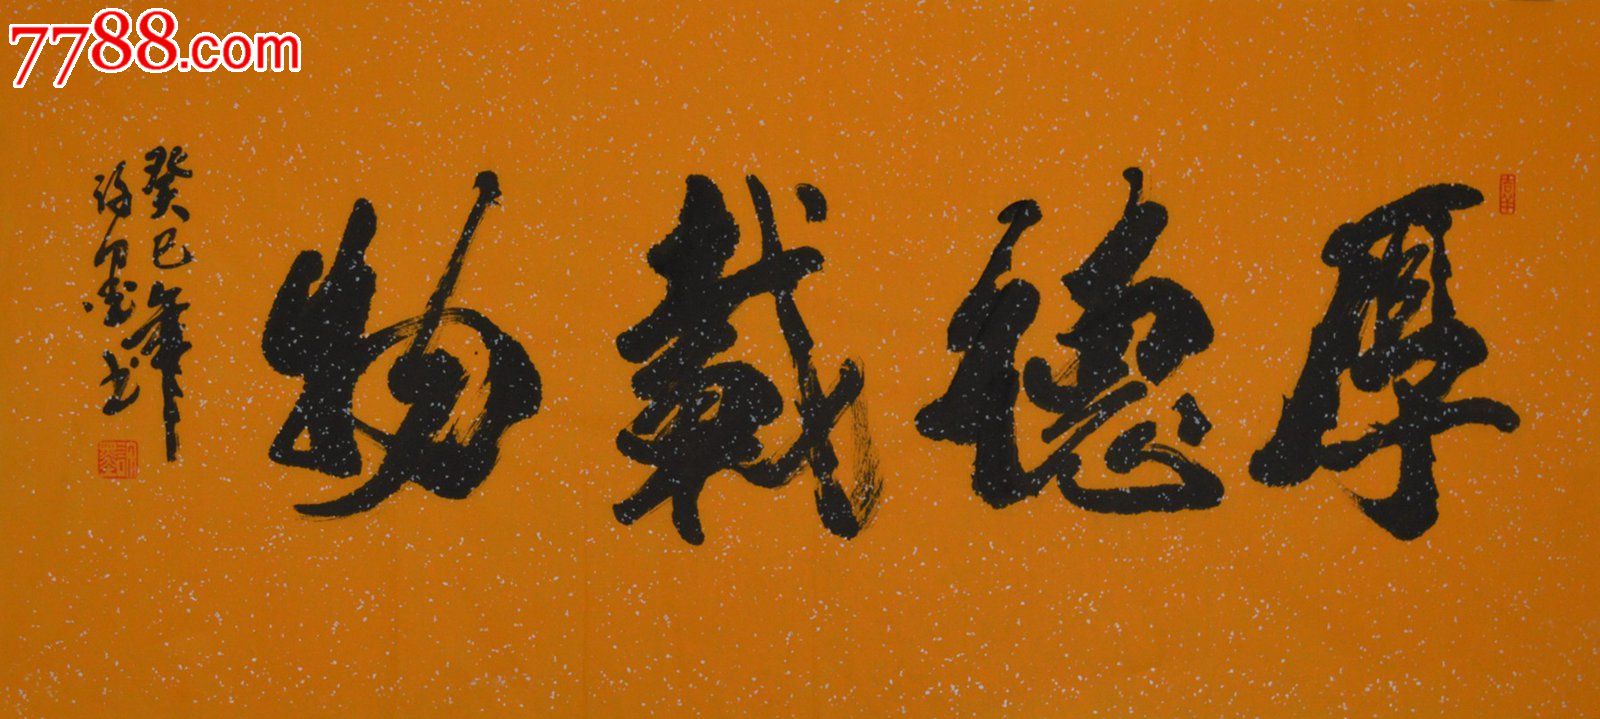 7788.com
厚德載物
癸巳年
书